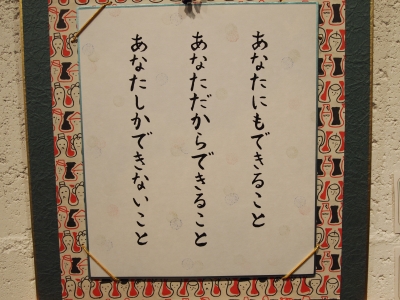 あなたにもできること
あなただからできること
あなたしかできないこと